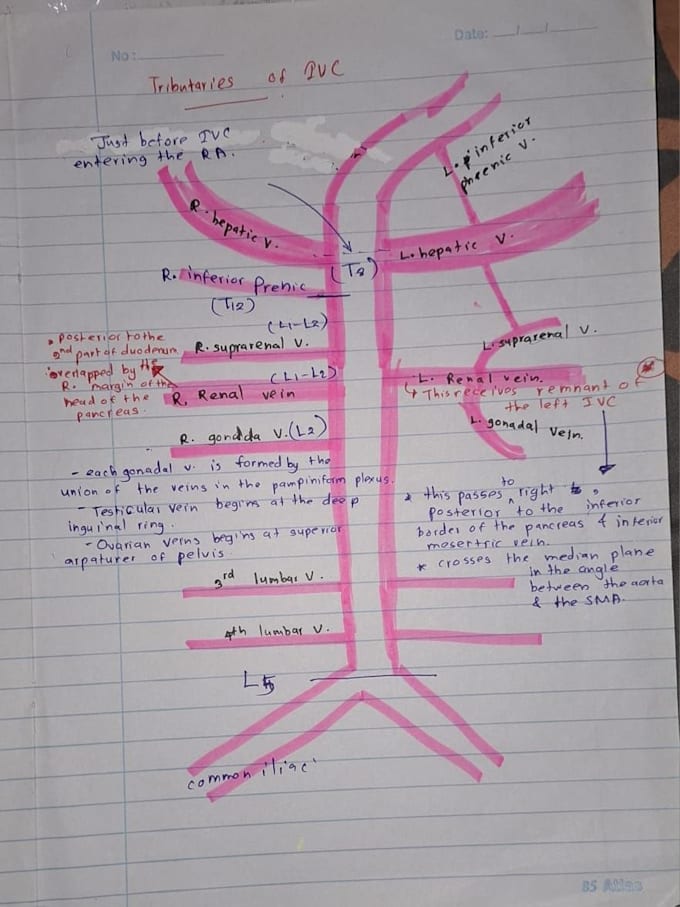 No:
Date: / /
Tributaries of IVC
Just before IVC
entering the RA.
L. inferior
phrenic V.
R. hepatic v.
L. hepatic V.
(T8)
R. inferior Prehic
(T12)
(L1-L2)
R. suprarenal V.
L. suprarenal V.
• Posterior to the
2nd part of duodenum
overlapped by the
R. margin of the
head of the
pancreas.
(L1-L2)
R. Renal vein
L. Renal vein.
↳ This receives remnant of
the left IVC
L. gonadal vein.
R. gonadda V. (L2)
- each gonadal v. is formed by the
union of the veins in the pampiniform plexus.
- Testicular vein begins at the deep
inguinal ring.
- Ovarian verns begins at superior
arpaturer of pelvis
* this passes to right
posterior to the inferior
border of the pancreas & inferior
mesertric vein.
* crosses the median plane
in the angle
between the aorta
& the SMA.
3rd lumbar V.
4th lumbar V.
L5
common iliac
BS Atlas